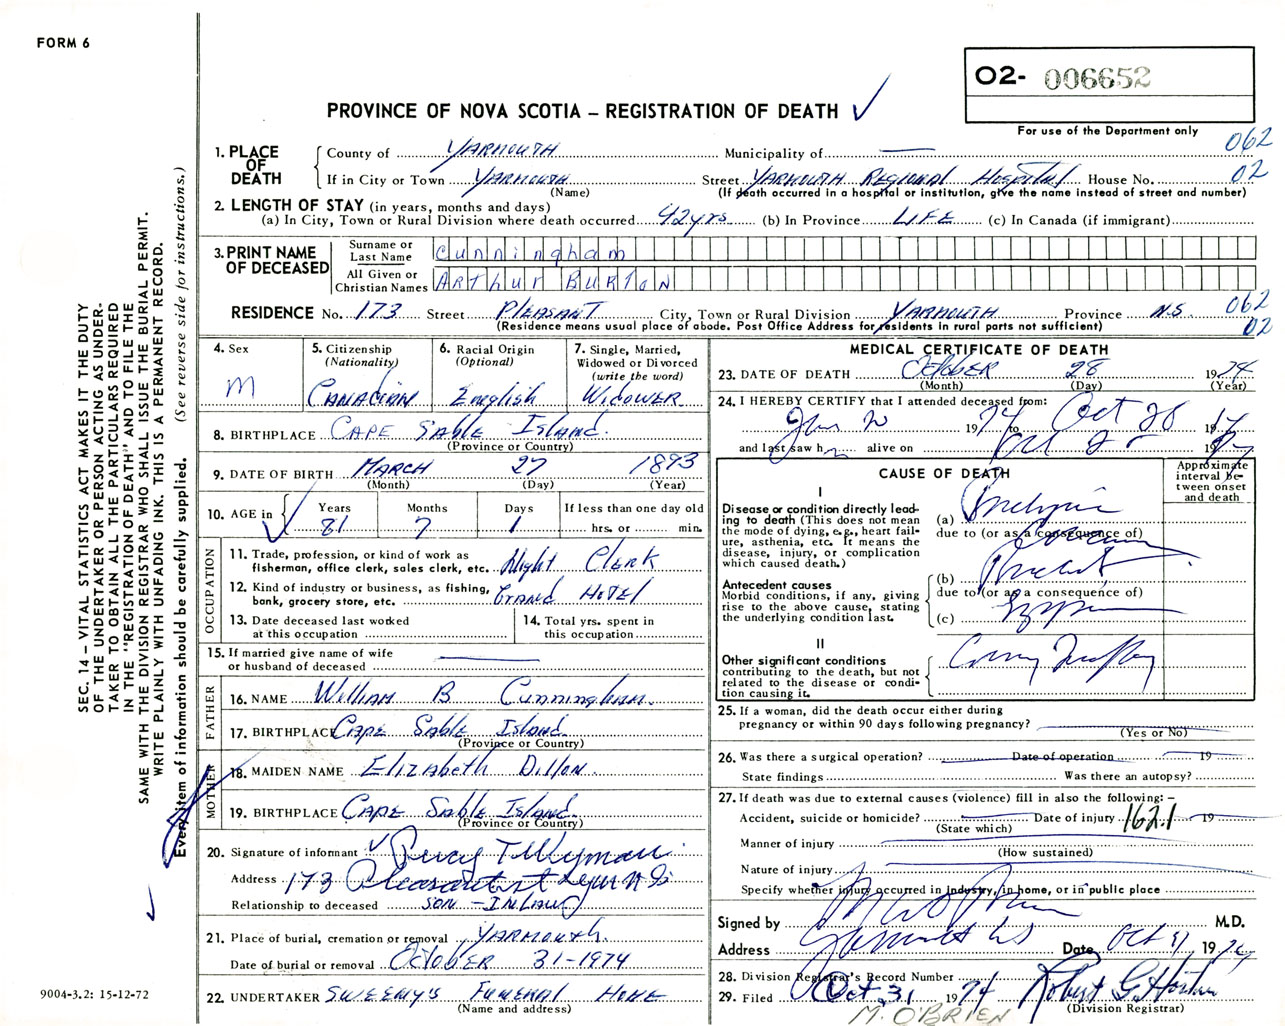 FORM 6
O2- 006652
PROVINCE OF NOVA SCOTIA – REGISTRATION OF DEATH ✓
For use of the Department only
062
02
1. PLACE OF DEATH
County of Yarmouth Municipality of —
If in City or Town Yarmouth Street Yarmouth Regional Hospital House No.
(Name) (If death occurred in a hospital or institution, give the name instead of street and number)
2. LENGTH OF STAY (in years, months and days)
(a) In City, Town or Rural Division where death occurred 42 yrs (b) In Province LIFE (c) In Canada (if immigrant)
3. PRINT NAME OF DECEASED
Surname or Last Name Cunningham
All Given or Christian Names Arthur Burton
RESIDENCE No. 173 Street Pleasant City, Town or Rural Division Yarmouth Province N.S. 062
(Residence means usual place of abode. Post Office Address for residents in rural parts not sufficient) 02
4. Sex
M
5. Citizenship
(Nationality)
Canadian
6. Racial Origin
(Optional)
English
7. Single, Married, Widowed or Divorced
(write the word)
Widower
8. BIRTHPLACE Cape Sable Island.
(Province or Country)
9. DATE OF BIRTH March 27 1893
(Month) (Day) (Year)
10. AGE in
Years Months Days If less than one day old
81 7 1 hrs. or min.
OCCUPATION
11. Trade, profession, or kind of work as fisherman, office clerk, sales clerk, etc. Night Clerk
12. Kind of industry or business, as fishing, bank, grocery store, etc. Grand Hotel
13. Date deceased last worked at this occupation
14. Total yrs. spent in this occupation
15. If married give name of wife or husband of deceased —
FATHER
16. NAME William B Cunningham.
17. BIRTHPLACE Cape Sable Island.
(Province or Country)
MOTHER
18. MAIDEN NAME Elizabeth Dillon.
19. BIRTHPLACE Cape Sable Island.
(Province or Country)
20. Signature of informant ✓ Percy T Wyman
Address 173 Pleasant st Yar N S
Relationship to deceased son-in-law
21. Place of burial, cremation or removal Yarmouth.
Date of burial or removal October 31-1974
22. UNDERTAKER Sweeny's Funeral Home
(Name and address)
MEDICAL CERTIFICATE OF DEATH
23. DATE OF DEATH October 28 1974
(Month) (Day) (Year)
24. I HEREBY CERTIFY that I attended deceased from:
1974 to Oct 28 19
and last saw h alive on 19
CAUSE OF DEATH
Approximate interval between onset and death
I
Disease or condition directly leading to death (This does not mean the mode of dying, e.g., heart failure, asthenia, etc. It means the disease, injury, or complication which caused death.)
(a)
due to (or as a consequence of)
Antecedent causes
Morbid conditions, if any, giving rise to the above cause, stating the underlying condition last.
(b)
due to (or as a consequence of)
(c)
II
Other significant conditions contributing to the death, but not related to the disease or condition causing it.
25. If a woman, did the death occur either during pregnancy or within 90 days following pregnancy?
(Yes or No)
26. Was there a surgical operation? Date of operation 19
State findings Was there an autopsy?
27. If death was due to external causes (violence) fill in also the following: –
Accident, suicide or homicide? Date of injury 162.1 19
(State which)
Manner of injury
(How sustained)
Nature of injury
Specify whether injury occurred in industry, in home, or in public place
Signed by M.D.
Address Yarmouth NS Date Oct 31 1974
28. Division Registrar's Record Number
29. Filed Oct. 31 1974 Robert G. Horton
(Division Registrar)
M. O'BRIEN
SEC. 14 – VITAL STATISTICS ACT MAKES IT THE DUTY
OF THE UNDERTAKER OR PERSON ACTING AS UNDER-
TAKER TO OBTAIN ALL THE PARTICULARS REQUIRED
IN THE "REGISTRATION OF DEATH" AND TO FILE THE
SAME WITH THE DIVISION REGISTRAR WHO SHALL ISSUE THE BURIAL PERMIT.
WRITE PLAINLY WITH UNFADING INK. THIS IS A PERMANENT RECORD.
Every item of information should be carefully supplied. (See reverse side for instructions.)
9004-3.2: 15-12-72